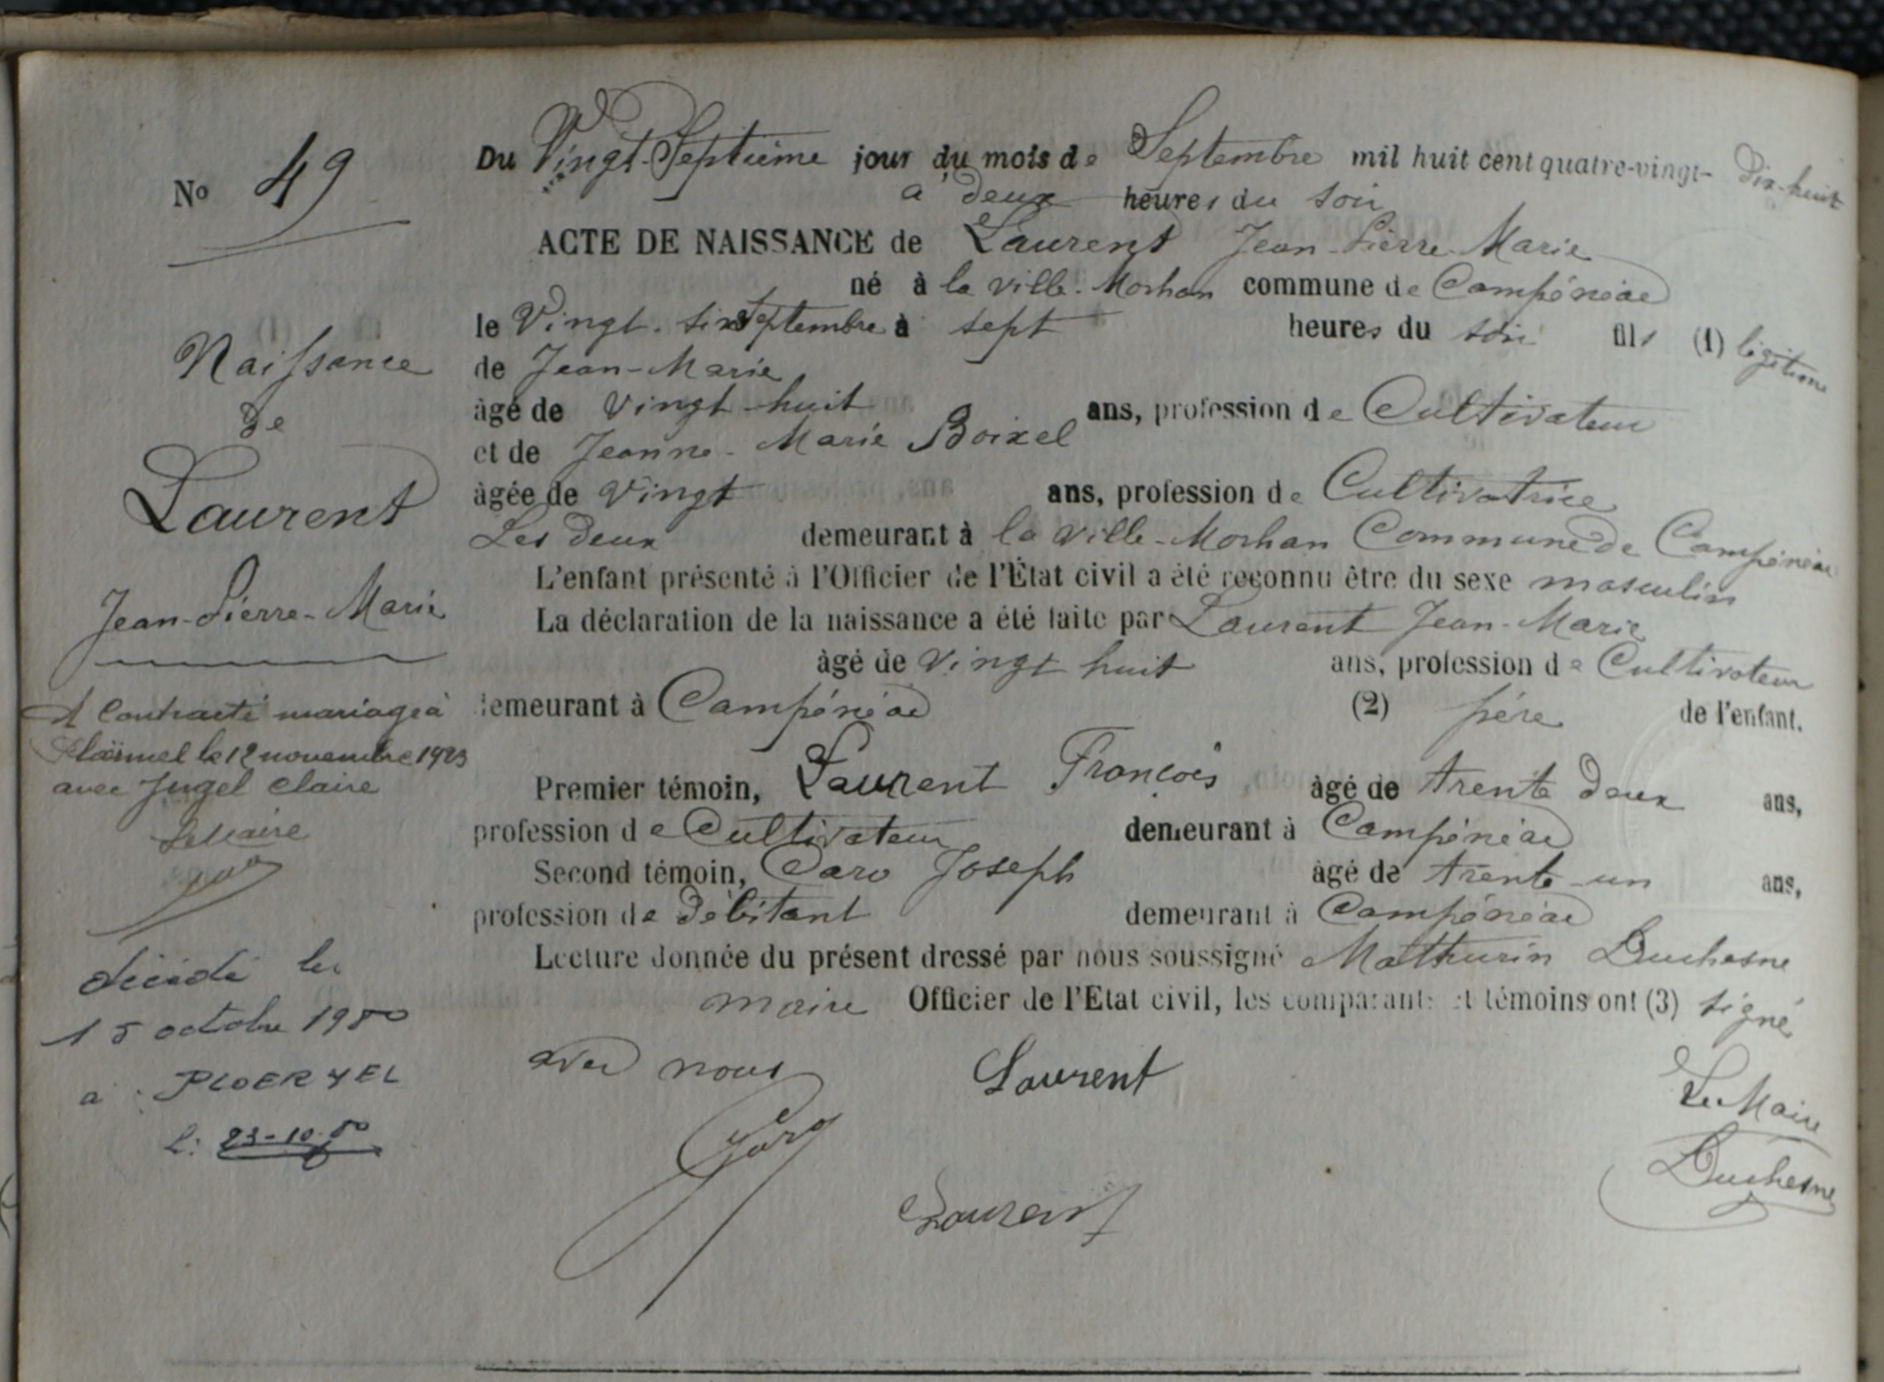 No 49
Naissance
de
Laurent
Jean-Pierre-Marie
A Contracté mariage à
Ploërmel le 12 novembre 1923
avec Jugel Claire
Le Maire
décédé le
15 octobre 1980
à PLOERMEL
l: 23-10-80
Du Vingt-Septième jour du mois de Septembre mil huit cent quatre-vingt-dix-huit
à deux heures du soir
ACTE DE NAISSANCE de Laurent Jean-Pierre-Marie
né à la ville-Morhan commune de Campénéac
le Vingt-six Septembre à sept heures du soir fils (1) légitime
de Jean-Marie
âgé de vingt-huit ans, profession de Cultivateur
et de Jeanne-Marie Boixel
âgée de vingt ans, profession de Cultivatrice
Les deux demeurant à la ville-Morhan Commune de Campénéac
L'enfant présenté à l'Officier de l'État civil a été reconnu être du sexe masculin
La déclaration de la naissance a été faite par Laurent Jean-Marie
âgé de vingt huit ans, profession de Cultivateur
demeurant à Campénéac (2) père de l'enfant.
Premier témoin, Laurent François âgé de trente deux ans,
profession de Cultivateur demeurant à Campénéac
Second témoin, Caro Joseph âgé de trente-un ans,
profession de débitant demeurant à Campénéac
Lecture donnée du présent dressé par nous soussigné Mathurin Duchesne
maire Officier de l'Etat civil, les comparants et témoins ont (3) signé
avec nous
Laurent
Le Maire
Caro
Duchesne
Laurent